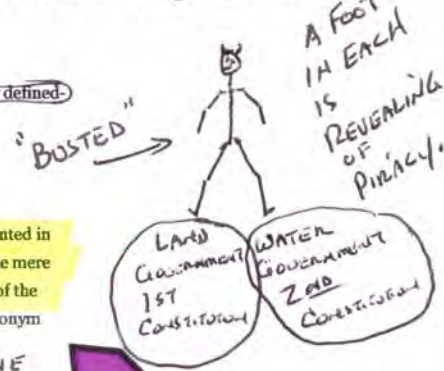 defined-
A FOOT
IN EACH
IS
REVEALING
OF
PIRACY.
"BUSTED"
nted in
e mere
of the
onym
LAND
GOVERNMENT
1ST
CONSTITUTION
WATER
GOVERNMENT
2ND
CONSTITUTION